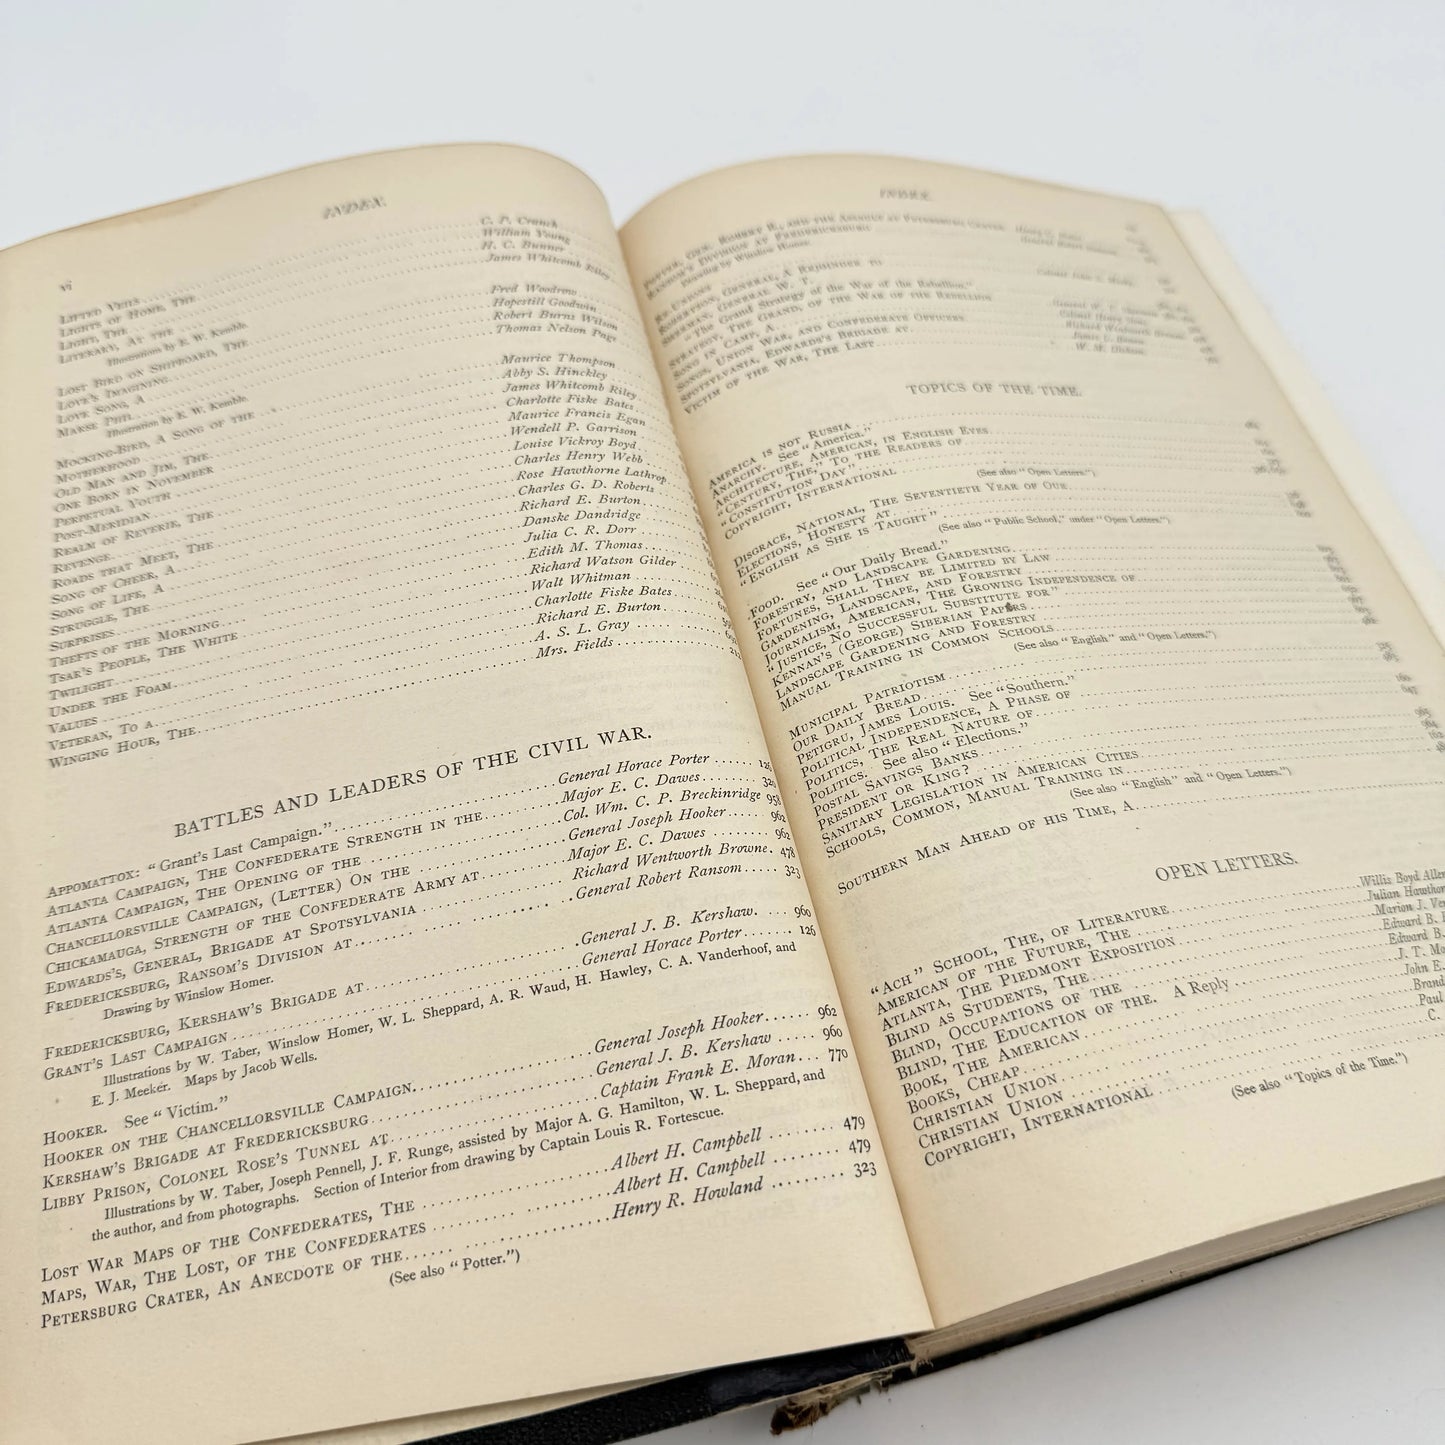 INDEX.
vi
LIFTED VEILS C. P. Cranch
LIGHTS OF HOME, THE William Young
LIGHT, THE H. C. Bunner
LITERARY, AT THE James Whitcomb Riley
Illustrations by E. W. Kemble.
LOST BIRD ON SHIPBOARD, THE Fred Woodrow
LOVE'S IMAGINING Hopestill Goodwin
LOVE SONG, A Robert Burns Wilson
MARSE PHIL Thomas Nelson Page
Illustration by E. W. Kemble.
MOCKING-BIRD, A SONG OF THE Maurice Thompson
MOTHERHOOD Abby S. Hinckley
OLD MAN AND JIM, THE James Whitcomb Riley
ONE BORN IN NOVEMBER Charlotte Fiske Bates
PERPETUAL YOUTH Maurice Francis Egan
POST-MERIDIAN Wendell P. Garrison
REALM OF REVERIE, THE Louise Vickroy Boyd
REVENGE Charles Henry Webb
ROADS THAT MEET, THE Rose Hawthorne Lathrop
SONG OF CHEER, A Charles G. D. Roberts
SONG OF LIFE, A Richard E. Burton
STRUGGLE, THE Danske Dandridge
SURPRISES Julia C. R. Dorr
THEFTS OF THE MORNING Edith M. Thomas
TSAR'S PEOPLE, THE WHITE Richard Watson Gilder
TWILIGHT Walt Whitman
UNDER THE FOAM Charlotte Fiske Bates
VALUES Richard E. Burton
VETERAN, TO A A. S. L. Gray
WINGING HOUR, THE Mrs. Fields 212
BATTLES AND LEADERS OF THE CIVIL WAR.
APPOMATTOX: "Grant's Last Campaign." General Horace Porter 126
ATLANTA CAMPAIGN, THE CONFEDERATE STRENGTH IN THE Major E. C. Dawes 320
ATLANTA CAMPAIGN, THE OPENING OF THE Col. Wm. C. P. Breckinridge 958
CHANCELLORSVILLE CAMPAIGN, (LETTER) ON THE General Joseph Hooker 962
CHICKAMAUGA, STRENGTH OF THE CONFEDERATE ARMY AT Major E. C. Dawes 962
EDWARDS'S, GENERAL, BRIGADE AT SPOTSYLVANIA Richard Wentworth Browne. 478
FREDERICKSBURG, RANSOM'S DIVISION AT General Robert Ransom 323
Drawing by Winslow Homer.
FREDERICKSBURG, KERSHAW'S BRIGADE AT General J. B. Kershaw. 960
GRANT'S LAST CAMPAIGN General Horace Porter 126
Illustrations by W. Taber, Winslow Homer, W. L. Sheppard, A. R. Waud, H. Hawley, C. A. Vanderhoof, and
E. J. Meeker. Maps by Jacob Wells.
HOOKER. See "Victim."
HOOKER ON THE CHANCELLORSVILLE CAMPAIGN. General Joseph Hooker 962
KERSHAW'S BRIGADE AT FREDERICKSBURG General J. B. Kershaw 960
LIBBY PRISON, COLONEL ROSE'S TUNNEL AT Captain Frank E. Moran 770
Illustrations by W. Taber, Joseph Pennell, J. F. Runge, assisted by Major A. G. Hamilton, W. L. Sheppard, and
the author, and from photographs. Section of Interior from drawing by Captain Louis R. Fortescue.
LOST WAR MAPS OF THE CONFEDERATES, THE Albert H. Campbell 479
MAPS, WAR, THE LOST, OF THE CONFEDERATES Albert H. Campbell 479
PETERSBURG CRATER, AN ANECDOTE OF THE Henry R. Howland 323
(See also "Potter.")
INDEX.
POTTER, GEN. ROBERT B., AND THE ASSAULT AT PETERSBURG CRATER
RANSOM'S DIVISION AT FREDERICKSBURG General Robert Ransom
Drawing by Winslow Homer.
RE UNION!
ROBERTSON, GENERAL, A REJOINDER TO Colonel John S. Mosby
SHERMAN, GENERAL W. T.
"The Grand Strategy of the War of the Rebellion."
STRATEGY, THE GRAND, OF THE WAR OF THE REBELLION General W. T. Sherman
SONG IN CAMP, A
SONGS, UNION WAR, AND CONFEDERATE OFFICERS
SPOTSYLVANIA, EDWARDS'S BRIGADE AT Richard Wentworth Browne
VICTIM OF THE WAR, THE LAST
TOPICS OF THE TIME.
AMERICA IS NOT RUSSIA
ANARCHY. See "America."
ARCHITECTURE, AMERICAN, IN ENGLISH EYES
"CENTURY, THE," TO THE READERS OF
"CONSTITUTION DAY"
COPYRIGHT, INTERNATIONAL
(See also "Open Letters.")
DISGRACE, NATIONAL, THE SEVENTIETH YEAR OF OUR
ELECTIONS, HONESTY AT
"ENGLISH AS SHE IS TAUGHT"
(See also "Public School," under "Open Letters.")
FOOD. See "Our Daily Bread."
FORESTRY, AND LANDSCAPE GARDENING
FORTUNES, SHALL THEY BE LIMITED BY LAW
GARDENING, LANDSCAPE, AND FORESTRY
JOURNALISM, AMERICAN, THE GROWING INDEPENDENCE OF
"JUSTICE, NO SUCCESSFUL SUBSTITUTE FOR"
KENNAN'S (GEORGE) SIBERIAN PAPERS
LANDSCAPE GARDENING AND FORESTRY
MANUAL TRAINING IN COMMON SCHOOLS
(See also "English" and "Open Letters.")
MUNICIPAL PATRIOTISM
OUR DAILY BREAD
PETIGRU, JAMES LOUIS. See "Southern."
POLITICAL INDEPENDENCE, A PHASE OF
POLITICS, THE REAL NATURE OF
POLITICS. See also "Elections."
POSTAL SAVINGS BANKS
PRESIDENT OR KING?
SANITARY LEGISLATION IN AMERICAN CITIES
SCHOOLS, COMMON, MANUAL TRAINING IN
(See also "English" and "Open Letters.")
SOUTHERN MAN AHEAD OF HIS TIME, A
OPEN LETTERS.
"ACH" SCHOOL, THE, OF LITERATURE Willis Boyd Allen
AMERICAN OF THE FUTURE, THE Julian Hawthor
ATLANTA, THE PIEDMONT EXPOSITION Marion J. Ver
BLIND AS STUDENTS, THE Edward B.
BLIND, OCCUPATIONS OF THE Edward B.
BLIND, THE EDUCATION OF THE. A Reply J. T. Mo
BOOK, THE AMERICAN John E.
BOOKS, CHEAP Brand
CHRISTIAN UNION Paul
CHRISTIAN UNION C.
COPYRIGHT, INTERNATIONAL
(See also "Topics of the Time.")